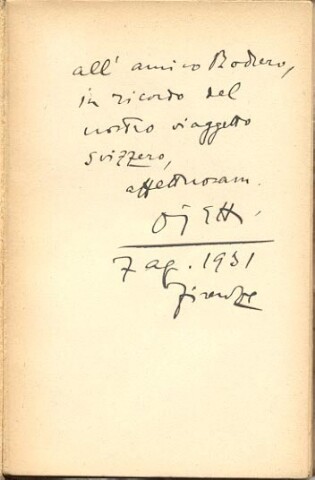 all' amico Rodiero,
in ricordo del
nostro viaggetto
svizzero,
affettuosam.
Ojetti.
7 ag. 1931
Firenze